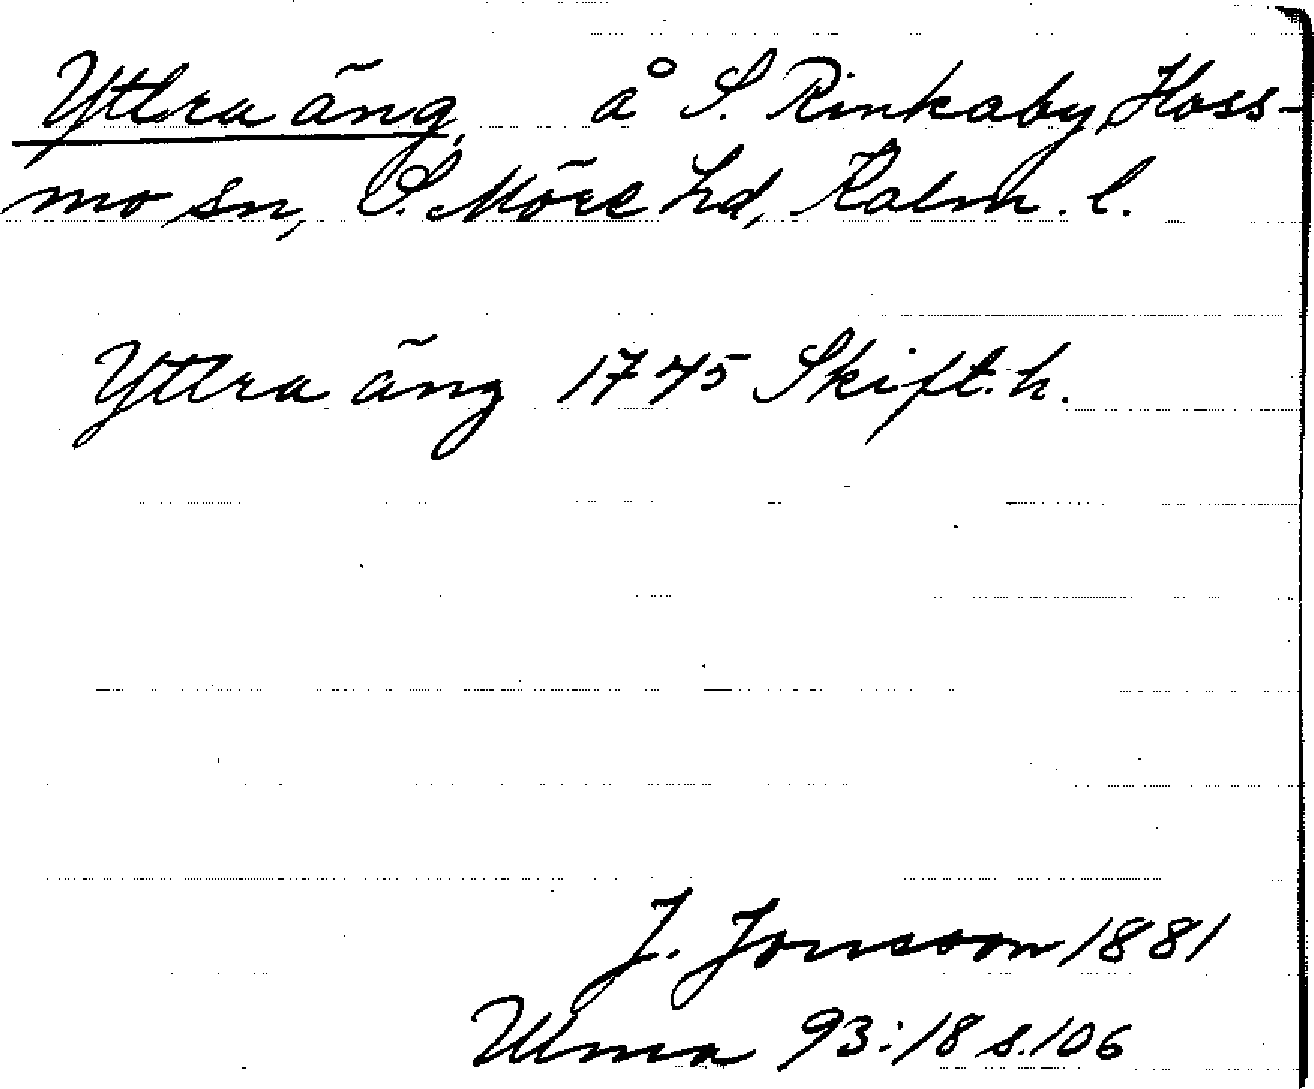 Yttra äng, å S. Rinkaby, Hoss-
mo sn, S. Möre hd, Kalm. l.
Yttra äng 1745 Skift.h.
J. Jonsson 1881
Ulma 93:18 s.106